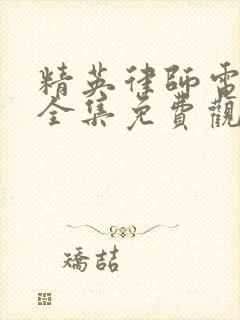 精英律師電
全集免費觀
矯喆